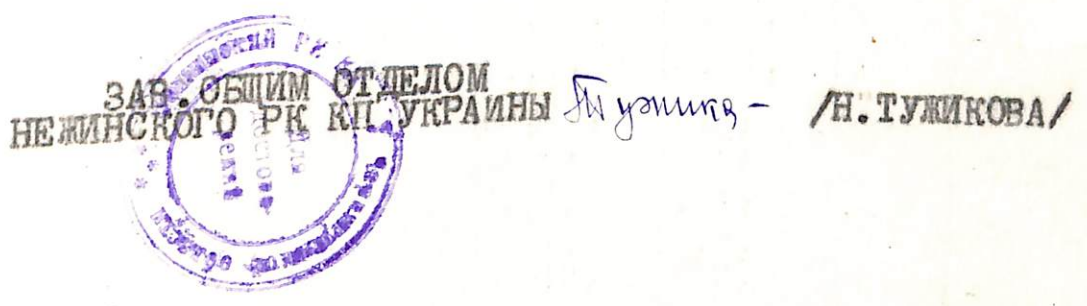 ЗАВ.ОБЩИМ ОТДЕЛОМ
НЕЖИНСКОГО РК КП УКРАИНЫ Тужика- /Н.ТУЖИКОВА/